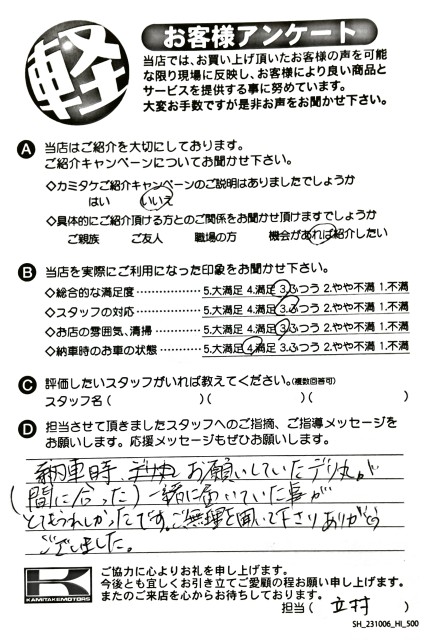 軽
お客様アンケート
当店では、お買い上げ頂いたお客様の声を可能
な限り現場に反映し、お客様により良い商品と
サービスを提供する事に努めています。
大変お手数ですが是非お声をお聞かせ下さい。
A 当店はご紹介を大切にしております。
ご紹介キャンペーンについてお聞かせ下さい。
◇カミタケご紹介キャンペーンのご説明はありましたでしょうか
はい いいえ
◇具体的にご紹介頂ける方とのご関係をお聞かせ頂けますでしょうか
ご親族 ご友人 職場の方 機会があれば紹介したい
B 当店を実際にご利用になった印象をお聞かせ下さい。
◇総合的な満足度・・・・・・・・・・・ 5.大満足 4.満足 3.ふつう 2.やや不満 1.不満
◇スタッフの対応・・・・・・・・・・・ 5.大満足 4.満足 3.ふつう 2.やや不満 1.不満
◇お店の雰囲気、清掃・・・・・・・・ 5.大満足 4.満足 3.ふつう 2.やや不満 1.不満
◇納車時のお車の状態・・・・・・・・ 5.大満足 4.満足 3.ふつう 2.やや不満 1.不満
C 評価したいスタッフがいれば教えてください。(複数回答可)
スタッフ名( )( )( )
D 担当させて頂きましたスタッフへのご指摘、ご指導メッセージを
お願いします。応援メッセージもぜひお願いします。
納車時、お願いしていたデリ丸が
(間に合った)一緒に届いていた事が
とてもうれしかったです。ご無理を聞いて下さりありがとう
ございました。
K
KAMITAKEMOTORS
ご協力に心よりお礼を申し上げます。
今後とも宜しくお引き立てご愛顧の程お願い申し上げます。
またのご来店を心からお待ちしております。
担当( 立村 )
SH_231006_HI_500